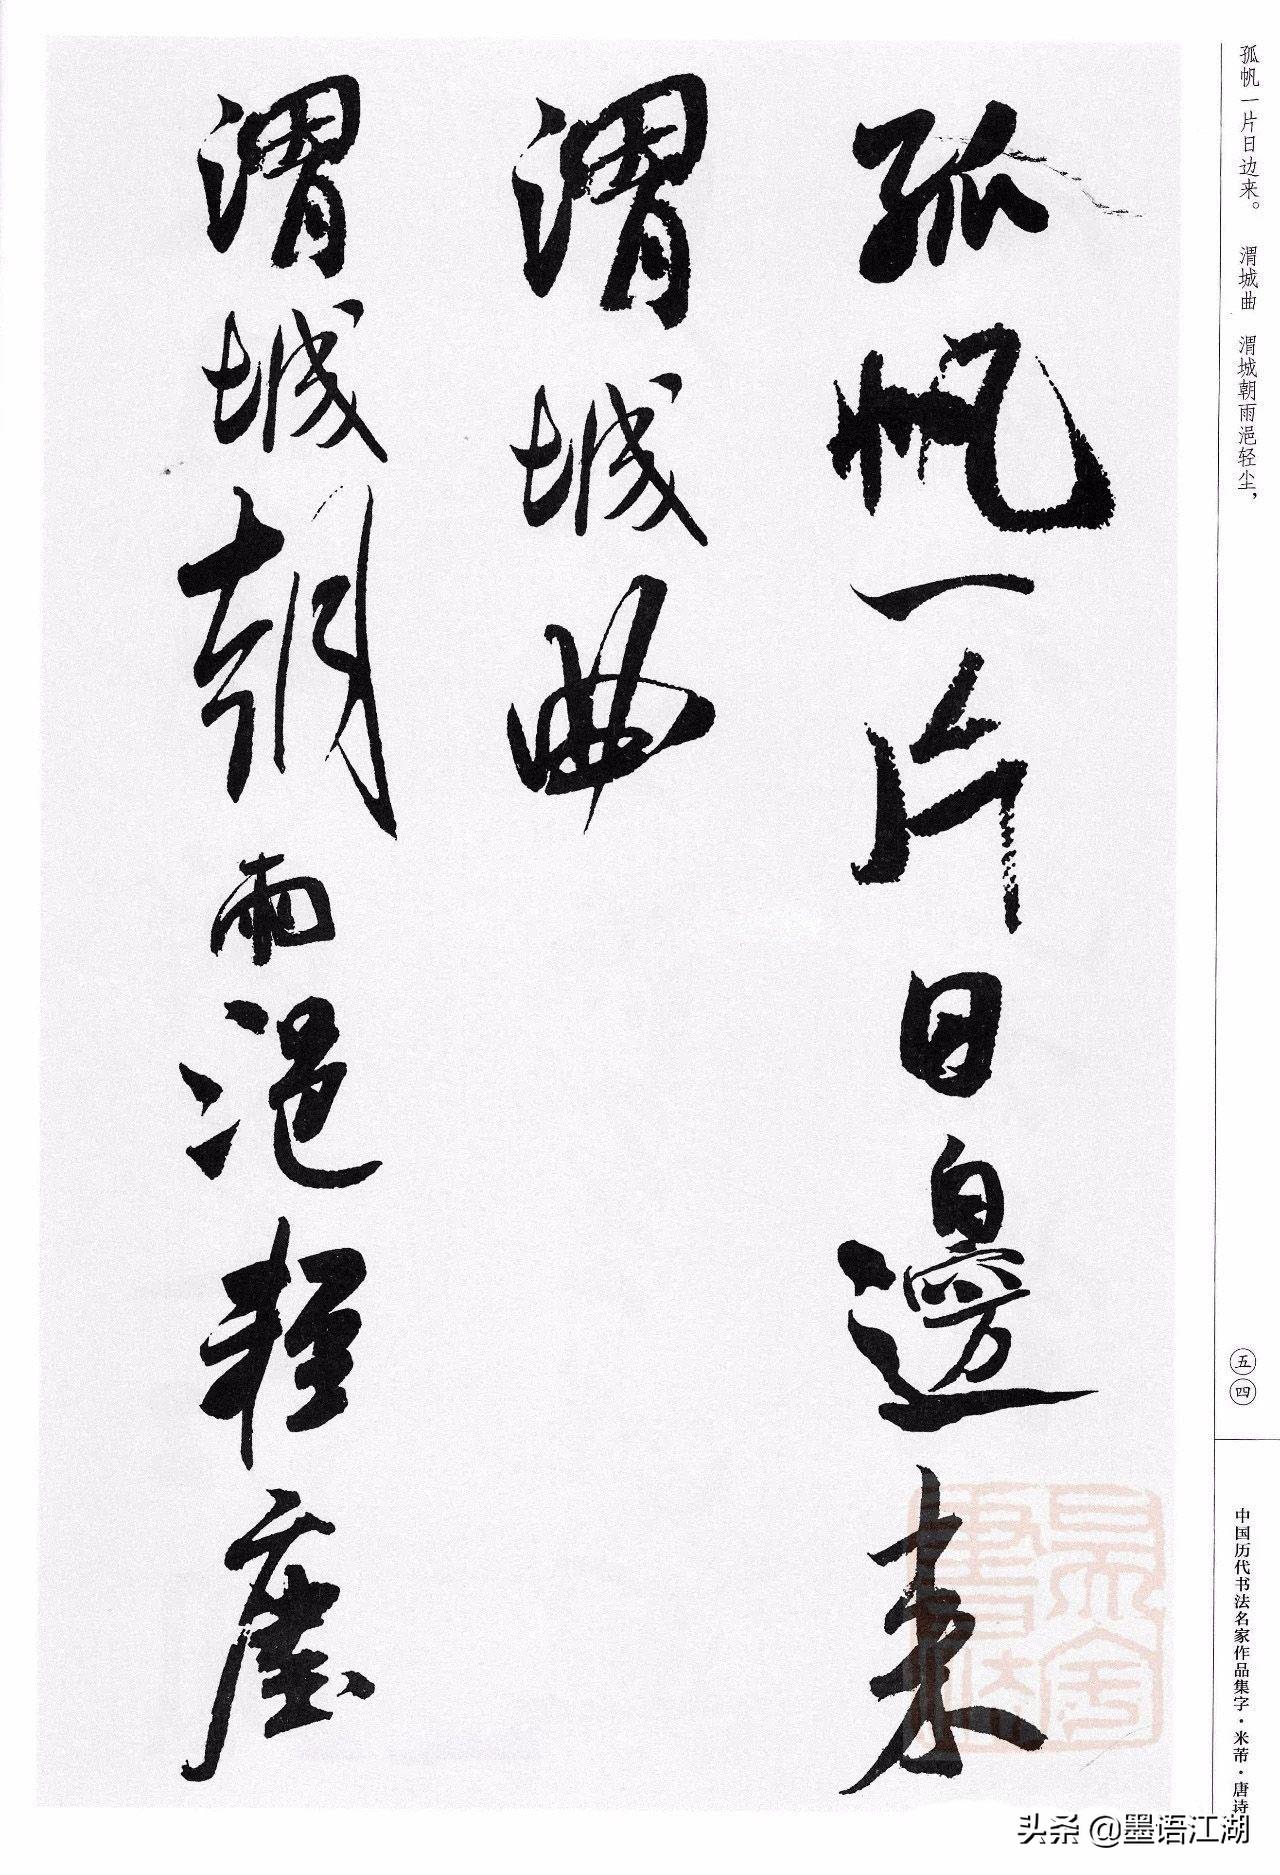 孤帆一片日边来。 渭城曲 渭城朝雨浥轻尘，
孤帆一片日邊来
渭城曲
渭城朝雨浥輕塵
五四
中国历代书法名家作品集字·米芾·唐诗
头条 @墨语江湖